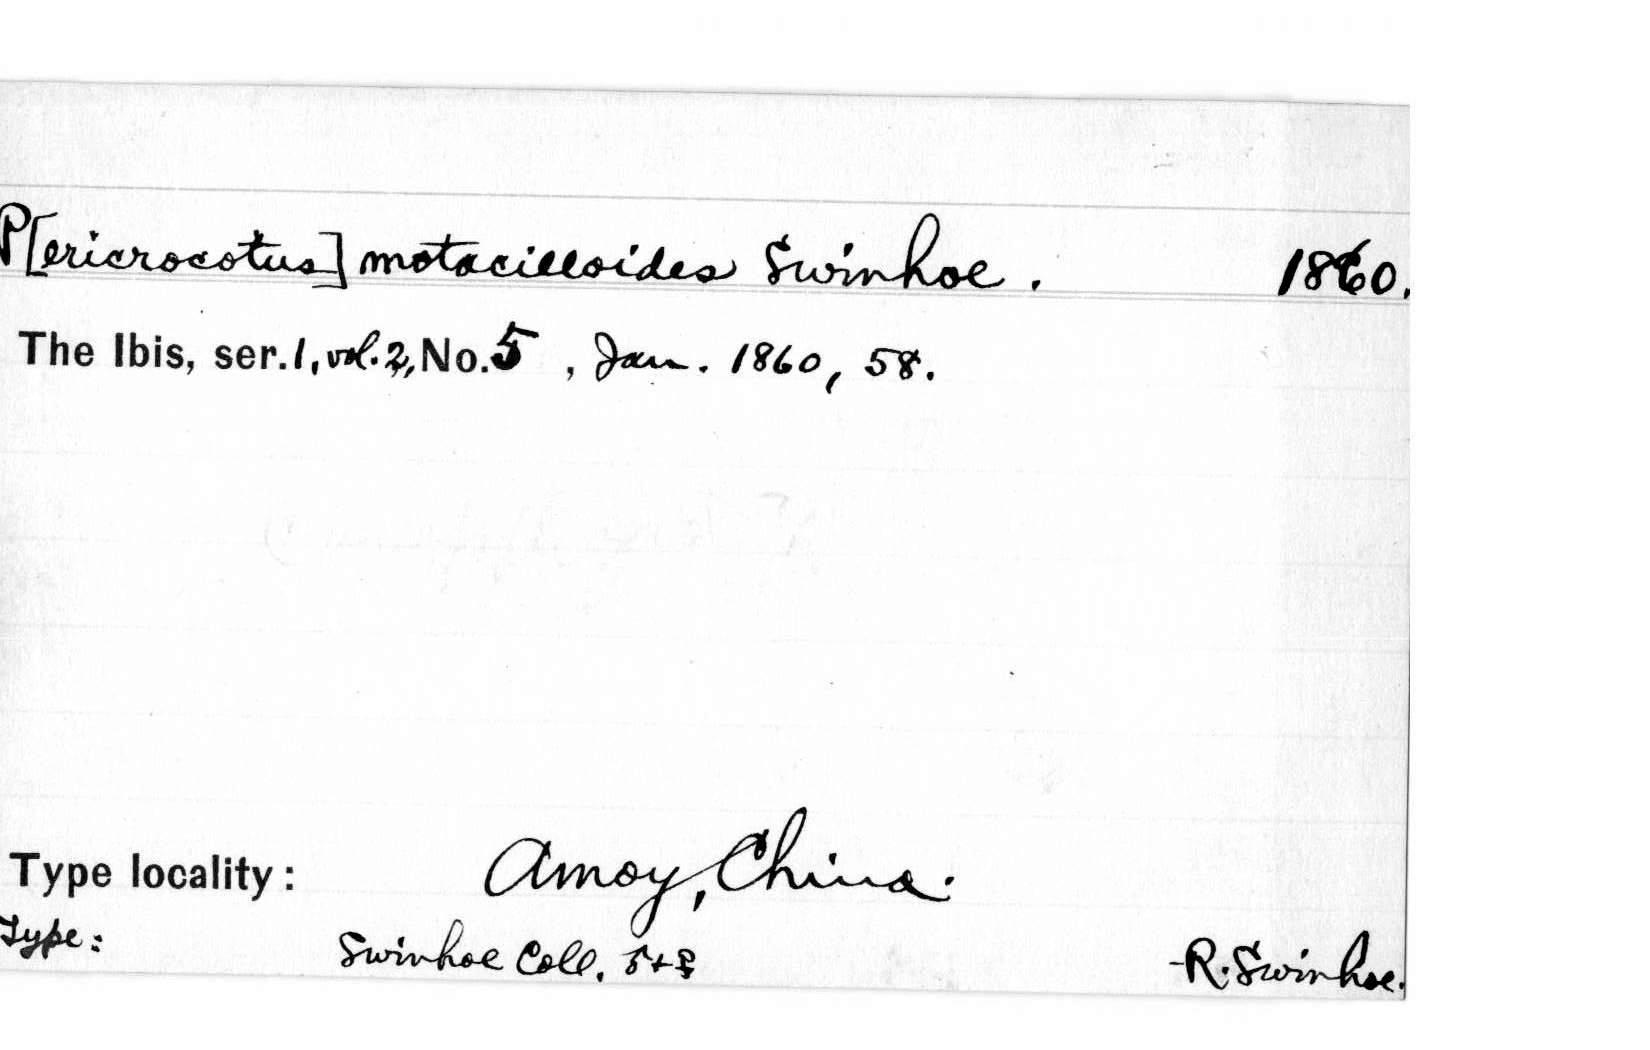 P[ericrocotus] motacilloides Swinhoe. 1860.
The Ibis, ser. 1, vol. 2, No. 5, Jan. 1860, 58.
Type locality: Amoy, China.
Type: Swinhoe Coll. ♂+♀ -R. Swinhoe.